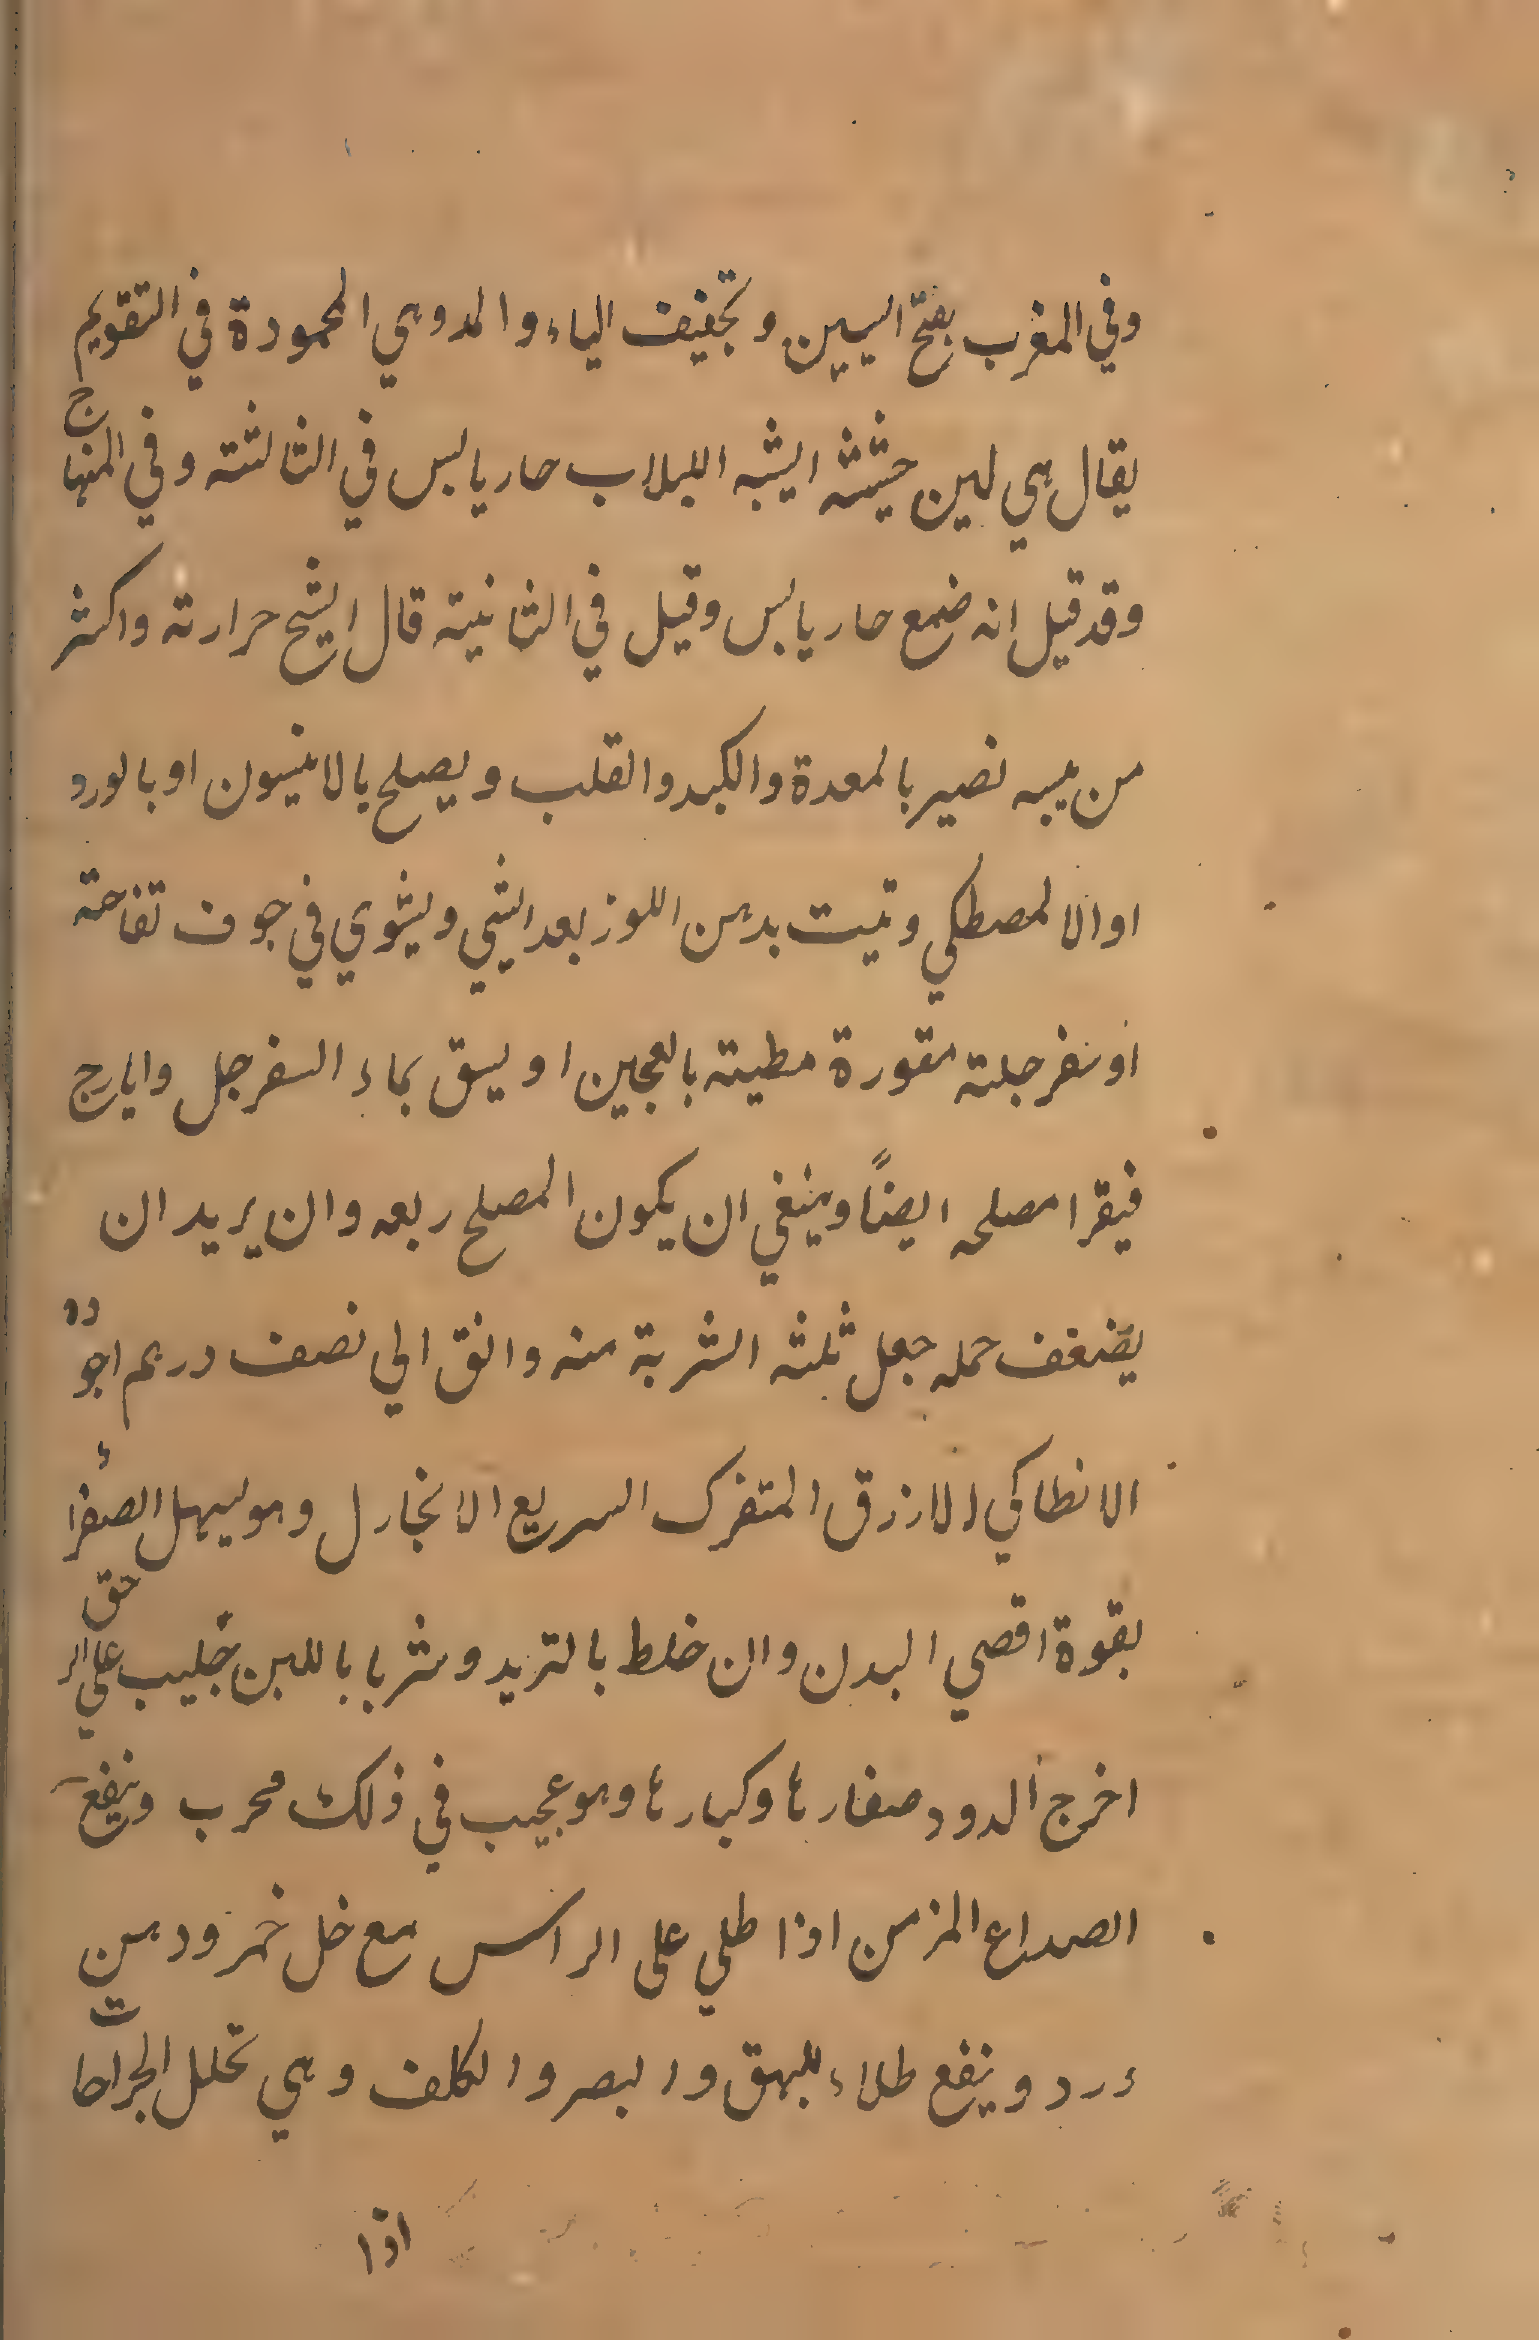 وفي المغرب بفتح السين وتخفيف الياء والمد وهي المحمودة في التقويم
يقال هي لبن حشيشة اليشبه اللبلاب حار يابس في الثالثة وفي المنهاج
وقد قيل انه ضمع حار يابس وقيل في الثانية قال الشيخ حرارته واكثر
من يبسه نضير بالمعدة والكبد والقلب ويصلح بالانيسون او بالورد
او الالمصطكي وتيت بدهن اللوز بعد الشي ويشوي في جوف تفاحة
او سفرجلة مقورة مطينة بالعجين او يسق بماء السفرجل وايارج
فيقرا مصلحه ايضًا وينبغي ان يكون المصلح ربعه وان يريد ان
يضعف حمله جعل ثلثه الشربة منه دانق الي نصف درهم اجوده
الانطاكي الازرق المتفرك السريع الانحارل وهو يسهل الصفراء
بقوة اقصي البدن وان خلط بالتربد وشربا باللبن حليب علي الريق
اخرج الدود صغارها وكبارها وهو عجيب في ذلك مجرب وينفع
الصداع المزمن اذا طلي على الراس مع خل خمر ودهن
ورد وينفع طلاء للبهق والبصر والكلف وهي تحلل الجراحات
اذا